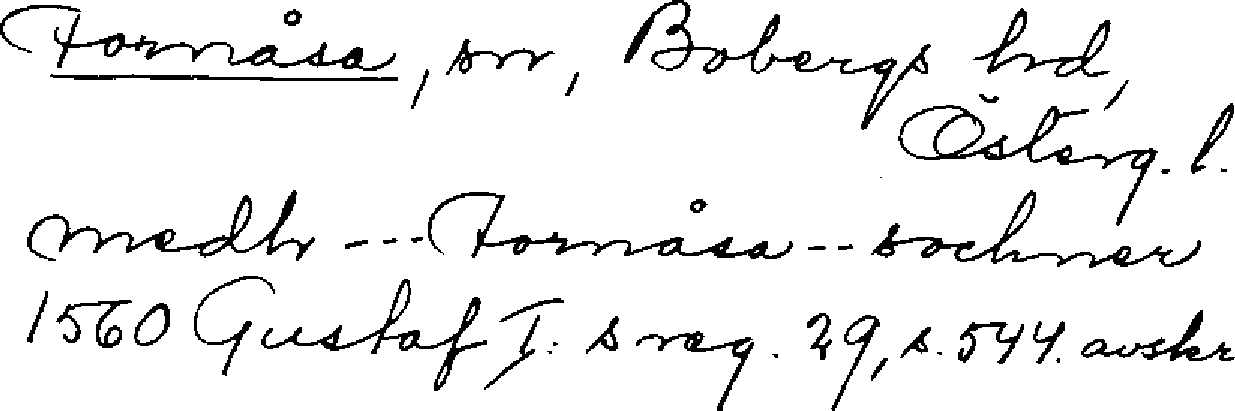 Fornåsa, sn, Bobergs hd,
Österg. l.
medh --- Fornåsa -- sochner
1560 Gustaf I: s reg. 29, s. 544. avskr